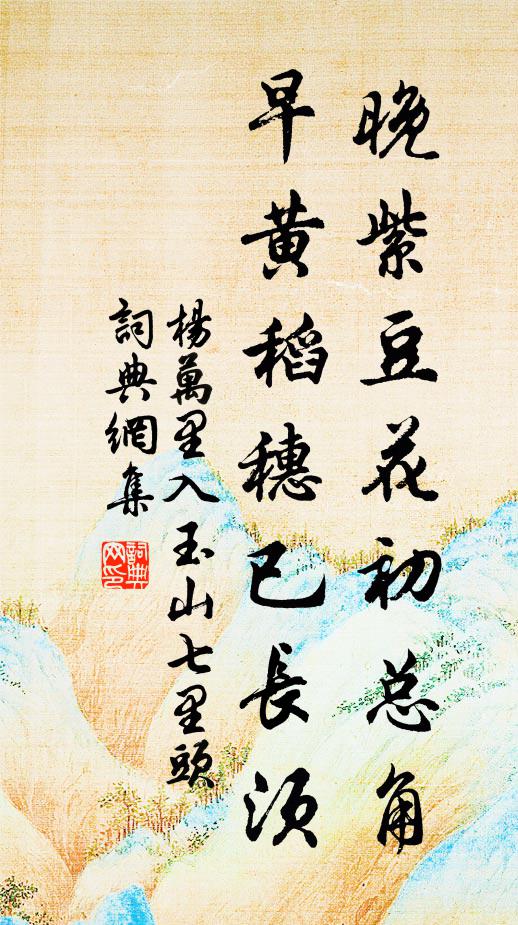 晚紫豆花初总角
早黄稻穗已長须
楊萬里入玉山七里頭
詞典網集
詞典网印